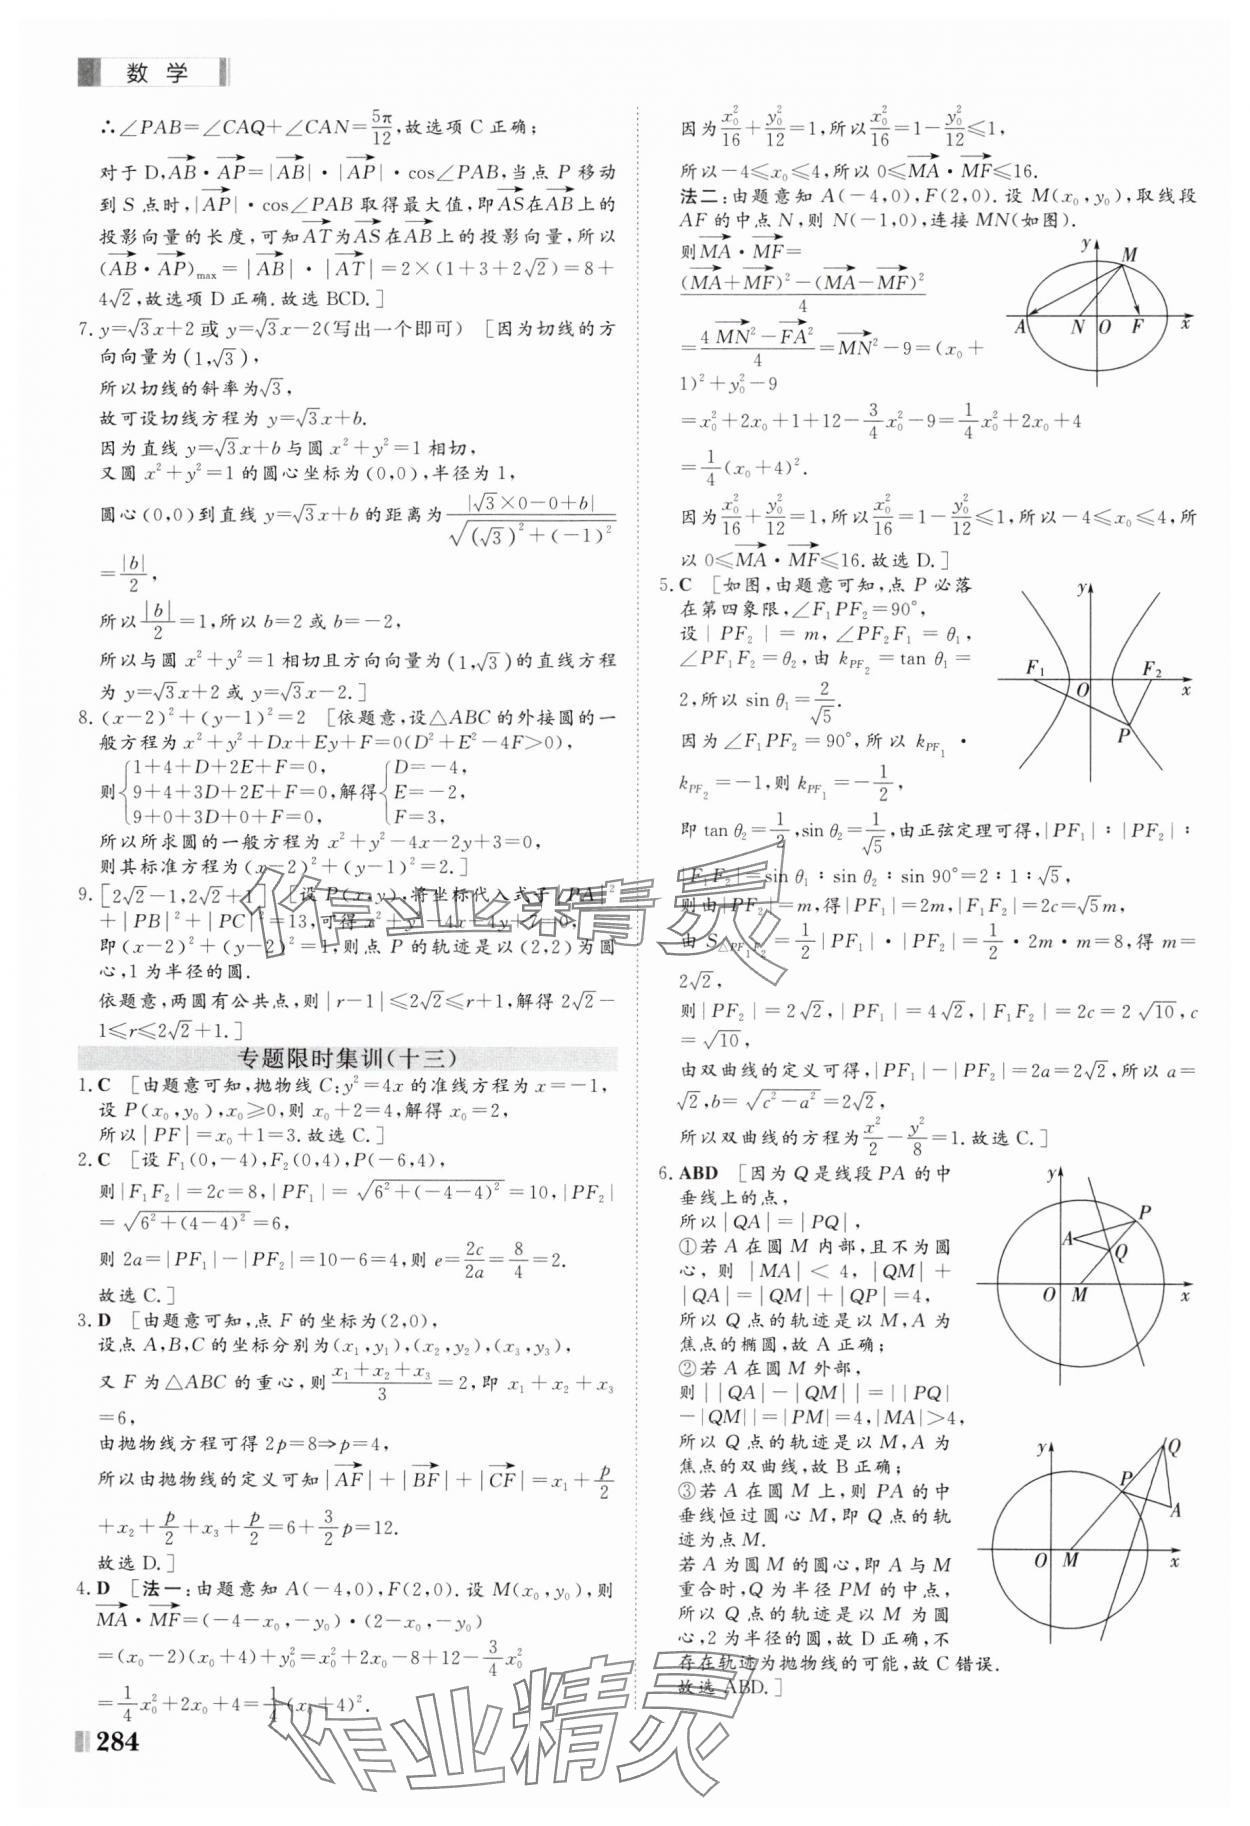 数 学
∴∠PAB=∠CAQ+∠CAN=5π/12,故选项 C 正确;
对于 D,AB·AP=|AB|·|AP|·cos∠PAB,当点 P 移动
到 S 点时,|AP|·cos∠PAB 取得最大值,即AS在AB上的
投影向量的长度,可知AT为AS在AB上的投影向量,所以
(AB·AP)max=|AB|·|AT|=2×(1+3+2√2)=8+
4√2,故选项 D 正确.故选 BCD.]
7. y=√3x+2 或 y=√3x-2(写出一个即可) [因为切线的方
向向量为(1,√3),
所以切线的斜率为√3,
故可设切线方程为 y=√3x+b.
因为直线 y=√3x+b 与圆 x²+y²=1 相切,
又圆 x²+y²=1 的圆心坐标为(0,0),半径为 1,
圆心(0,0)到直线 y=√3x+b 的距离为|√3×0-0+b|/√((√3)²+(-1)²)
=|b|/2,
所以|b|/2=1,所以 b=2 或 b=-2,
所以与圆 x²+y²=1 相切且方向向量为(1,√3)的直线方程
为 y=√3x+2 或 y=√3x-2.]
8. (x-2)²+(y-1)²=2 [依题意,设△ABC 的外接圆的一
般方程为 x²+y²+Dx+Ey+F=0(D²+E²-4F>0),
则{1+4+D+2E+F=0, 9+4+3D+2E+F=0, 9+0+3D+0+F=0, 解得{D=-4, E=-2, F=3,
所以所求圆的一般方程为 x²+y²-4x-2y+3=0,
则其标准方程为(x-2)²+(y-1)²=2.]
9. [2√2-1,2√2+1] [设 P(x,y),将坐标代入式子|PA|²
+|PB|²+|PC|²=13,可得 x²+y²-4x-4y+7=0,
即(x-2)²+(y-2)²=1,则点 P 的轨迹是以(2,2)为圆
心,1 为半径的圆.
依题意,两圆有公共点,则|r-1|≤2√2≤r+1,解得 2√2-
1≤r≤2√2+1.]
专题限时集训(十三)
1. C [由题意可知,抛物线 C:y²=4x 的准线方程为 x=-1,
设 P(x₀,y₀),x₀≥0,则 x₀+2=4,解得 x₀=2,
所以|PF|=x₀+1=3.故选 C.]
2. C [设 F₁(0,-4),F₂(0,4),P(-6,4),
则|F₁F₂|=2c=8,|PF₁|=√(6²+(-4-4)²)=10,|PF₂|
=√(6²+(4-4)²)=6,
则 2a=|PF₁|-|PF₂|=10-6=4,则 e=2c/2a=8/4=2.
故选 C.]
3. D [由题意可知,点 F 的坐标为(2,0),
设点 A,B,C 的坐标分别为(x₁,y₁),(x₂,y₂),(x₃,y₃),
又 F 为△ABC 的重心,则(x₁+x₂+x₃)/3=2,即 x₁+x₂+x₃
=6,
由抛物线方程可得 2p=8⇒p=4,
所以由抛物线的定义可知|AF|+|BF|+|CF|=x₁+p/2
+x₂+p/2+x₃+p/2=6+3/2p=12.
故选 D.]
4. D [法一:由题意知 A(-4,0),F(2,0).设 M(x₀,y₀),则
MA·MF=(-4-x₀,-y₀)·(2-x₀,-y₀)
=(x₀-2)(x₀+4)+y₀²=x₀²+2x₀-8+12-3/4x₀²
=1/4x₀²+2x₀+4=1/4(x₀+4)².
284
因为x₀²/16+y₀²/12=1,所以x₀²/16=1-y₀²/12≤1,
所以-4≤x₀≤4,所以 0≤MA·MF≤16.
法二:由题意知 A(-4,0),F(2,0).设 M(x₀,y₀),取线段
AF 的中点 N,则 N(-1,0),连接 MN(如图).
则MA·MF=
((MA+MF)²-(MA-MF)²)/4
=(4MN²-FA²)/4=MN²-9=(x₀+
1)²+y₀²-9
=x₀²+2x₀+1+12-3/4x₀²-9=1/4x₀²+2x₀+4
=1/4(x₀+4)².
y M A N O F x
因为x₀²/16+y₀²/12=1,所以x₀²/16=1-y₀²/12≤1,所以-4≤x₀≤4,所
以 0≤MA·MF≤16.故选 D.]
5. C [如图,由题意可知,点 P 必落
在第四象限,∠F₁PF₂=90°,
设|PF₂|=m,∠PF₂F₁=θ₁,
∠PF₁F₂=θ₂,由 kPF₂=tan θ₁=
2,所以 sin θ₁=2/√5.
因为∠F₁PF₂=90°,所以 kPF₁·
kPF₂=-1,则 kPF₁=-1/2,
y F₁ F₂ O x P
即 tan θ₂=1/2,sin θ₂=1/√5,由正弦定理可得,|PF₁|:|PF₂|:
|F₁F₂|=sin θ₁:sin θ₂:sin 90°=2:1:√5,
则由|PF₂|=m,得|PF₁|=2m,|F₁F₂|=2c=√5m,
由 S△PF₁F₂=1/2|PF₁|·|PF₂|=1/2·2m·m=8,得 m=
2√2,
则|PF₂|=2√2,|PF₁|=4√2,|F₁F₂|=2c=2√10,c
=√10,
由双曲线的定义可得,|PF₁|-|PF₂|=2a=2√2,所以 a=
√2,b=√(c²-a²)=2√2,
所以双曲线的方程为x²/2-y²/8=1.故选 C.]
6. ABD [因为 Q 是线段 PA 的中
垂线上的点,
所以|QA|=|PQ|,
①若 A 在圆 M 内部,且不为圆
心,则 |MA|<4,|QM|+
|QA|=|QM|+|QP|=4,
所以 Q 点的轨迹是以 M,A 为
焦点的椭圆,故 A 正确;
②若 A 在圆 M 外部,
则||QA|-|QM||=||PQ|
-|QM||=|PM|=4,|MA|>4,
所以 Q 点的轨迹是以 M,A 为
焦点的双曲线,故 B 正确;
③若 A 在圆 M 上,则 PA 的中
垂线恒过圆心 M,即 Q 点的轨
迹为点 M.
若 A 为圆 M 的圆心,即 A 与 M
重合时,Q 为半径 PM 的中点,
所以 Q 点的轨迹是以 M 为圆
心,2 为半径的圆,故 D 正确,不
存在轨迹为抛物线的可能,故 C 错误.
故选 ABD.]
y P A Q O M x
y Q P A O M x
作业精灵
作业精灵